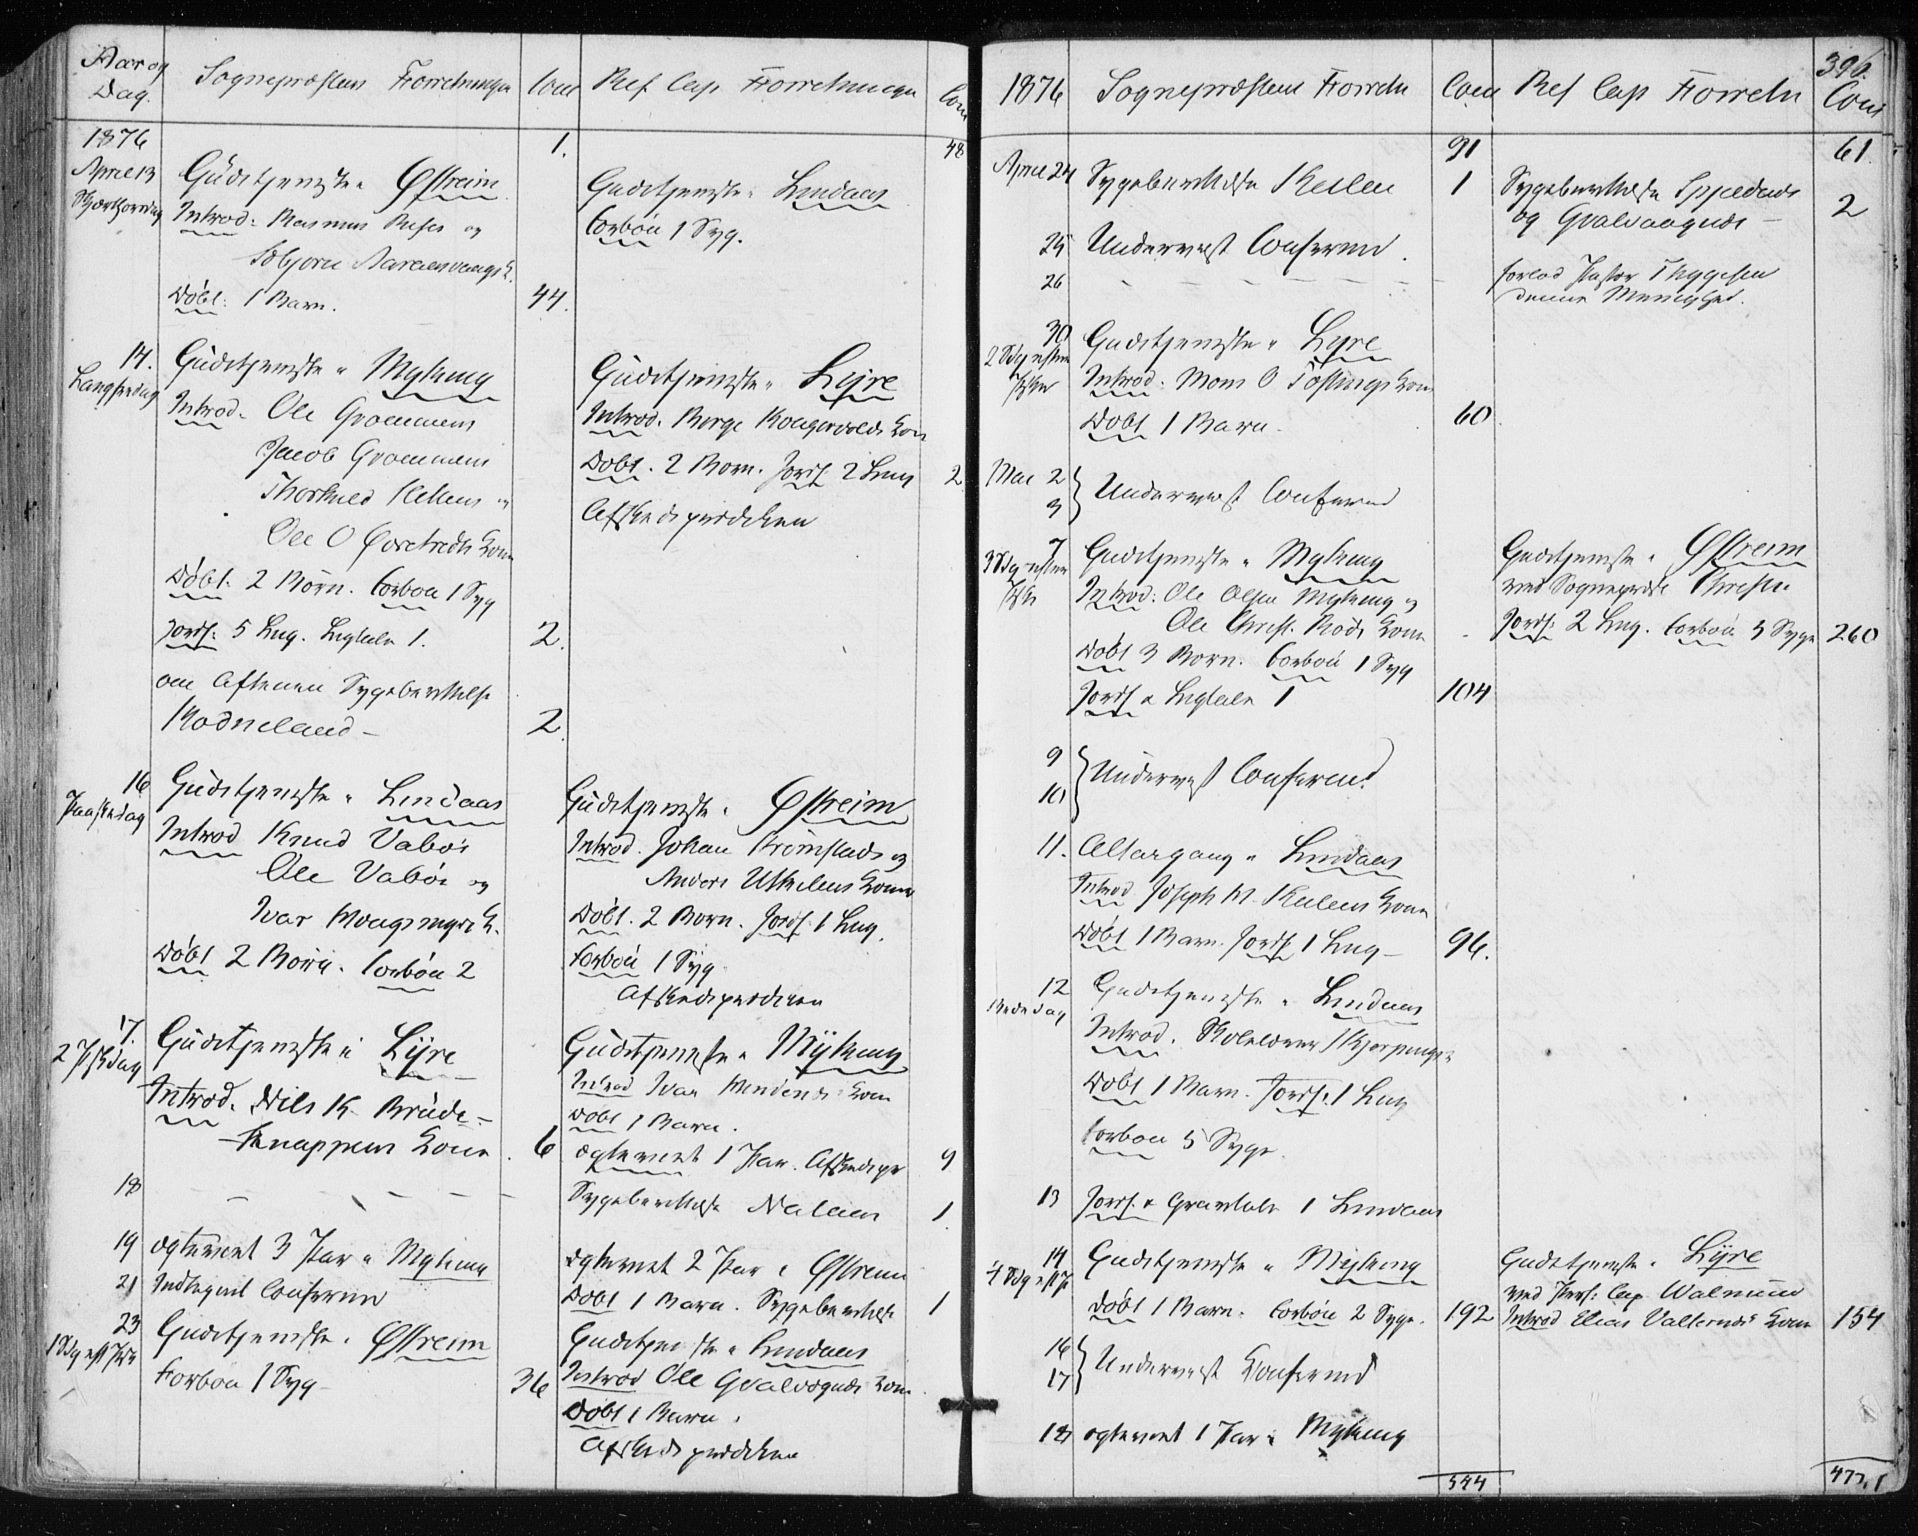 Aar og
Dag.
Sognepræstens Forretninger
Com
Res Cap Forretninger
Com
1876
1.
48
April 13
Skjærthorsdag
Gudstjeneste i Østreim
Introd: Rasmus Risa og
Døbt: 1 Barn.
44.
Gudstjeneste i Lindaas
Forbön 1 Syg.
14.
Langfredag
Gudstjeneste i Myking
Introd. Ole Grommens
Jacob Grommens
Ole O
Døbt: 2 Börn. Forbön 1 Syg
Jordf: 5 Lig. Ligtale 1.
2.
om Aftenen Sygeberettelse
Kodneland –
2.
Gudstjeneste i Lyre
Introd. Børge Kongsvolds Kone
Døbt. 2 Børn. Jordf. 2 Lig
2
Afskedsprædiken
16
Paaskedag
Gudstjeneste i Lindaas
Introd Knud Vabös
Ole Vabös og
Ivar
Døbt 2 Börn. Forbön 2
Gudstjeneste i Østreim
Introd. Johan
Anders Utkilens Kone
Døbt. 2 Børn. Jordf. 1 Lig.
Forbön 1 Syg
Afskedsprædiken
17.
2 Pskdag
Gudstjeneste i Lyre
Introd. Nils K. Brude-
knappens Kone
6
Gudstjeneste i Myking
Introd Ivar Kone
Døbt 1 Barn.
ægteviet 1 Par. Afskedspr
9
18
Sygeberettelse
1.
19
ægteviet 3 Par i Myking
21
Indtegnet Conferend
ægteviet 2 Par i Østreim
Døbt 1 Barn. Sygeberettelse
1
23
1 Sdg eft Pske
Gudstjeneste i Østreim
Forbön 1 Syg
36
Gudstjeneste i Lindaas
Introd Ole Gvalvogneds Kone
Døbt 1 Barn.
Afskedsprædiken
1876
Sognepræstens Forretn
Com
Res Cap Forretn
396.
Com
91
61.
April 24
Sygeberettelse Keilen
1
Sygeberettelse
og Gvalvaagnes –
2
25
Underviist Conferend.
26
forlod Pastor Thygesen
denne Menighed.
30
2 Sdg efter
Pske
Gudstjeneste i Lyre
Introd. Mons O Kone
Døbt 1 Barn.
60.
Mai 2
3
Underviist Conferend
7
3 Sdg efter
Pske
Gudstjeneste i Myking
Introd: Ole Olsen Myking og
Ole Christ. Kone
Døbt 3 Børn. Forbön 1 Syg
Jordf. & Ligtale 1
104
Gudstjeneste i Østreim
ved Sognepræst
Jordf. 2 Lig. Forbön 3 Syge
260
9
10
Underviist Conferend
11.
Altergang i Lindaas
Introd Joseph M. Keilens Kone
Døbt 1 Barn. Jordf. 1 Lig –
96.
12
Bededag
Gudstjeneste i Lindaas
Introd. Skolelærer
Døbt 1 Barn. Jordf. 1 Lig
Forbön 5 Syge.
13
Jordf. & Gravtale 1 Lindaas
14
4 Sdg eft P
Gudstjeneste i Myking
Døbt 1 Barn. Forbön 2 Syge.
192
Gudstjeneste i Lyre
ved Pers: Cap. Walnum
Introd Elias Kone
154
16
17
Underviist Conferend
18
ægteviet 1 Par i Myking
544
477.